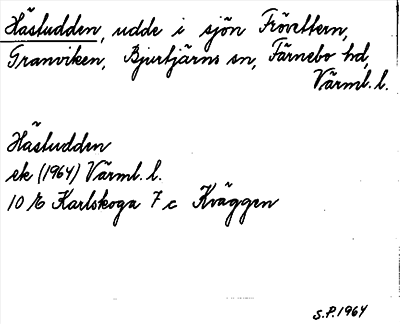 Hästudden, udde i sjön Frövettern,
Granviken, Bjurtjärns sn, Färnebo hd,
Värml. l.
Hästudden
ek (1964) Värml. l.
10 E Karlskoga 7 c Kväggen
S.P. 1964